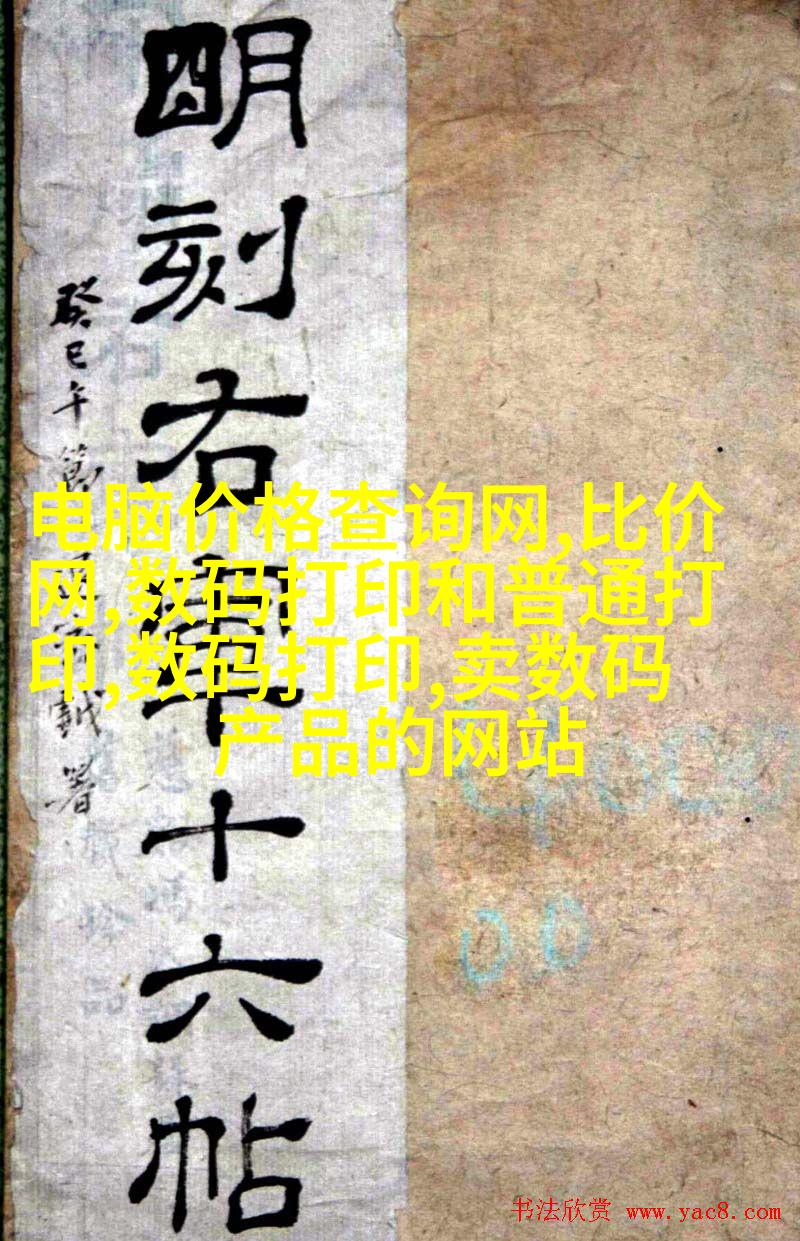 明刻右軍十六帖
癸巳午節
誠署
电脑价格查询网,比价
网,数码打印和普通打
印,数码打印,卖数码
产品的网站
书法欣赏 www.yac8.com